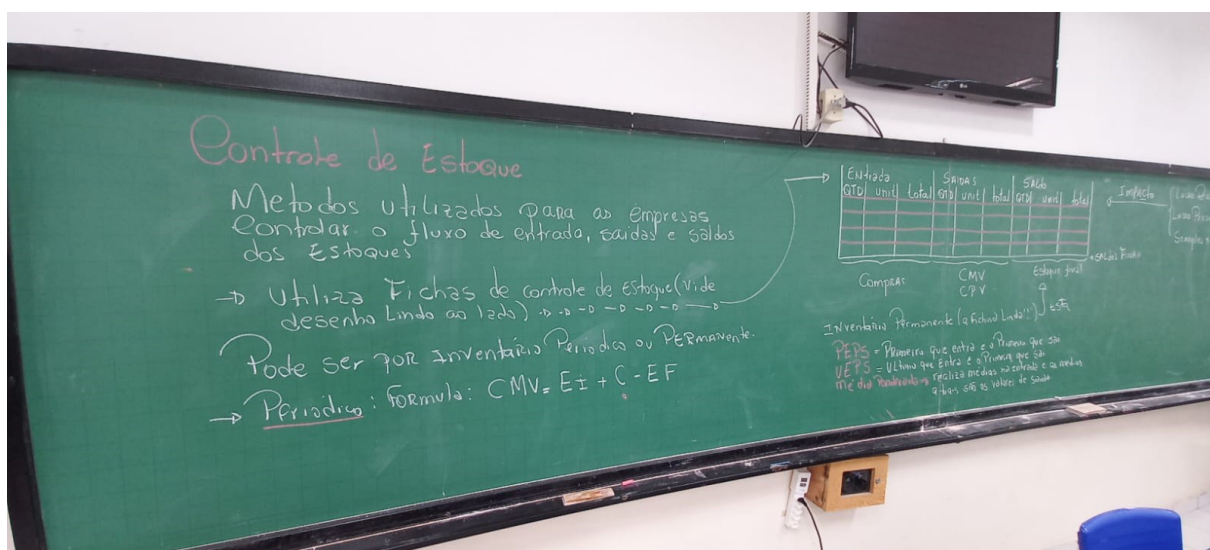 Controle de Estoque
Metodos utilizados para as empresas
Controlar o fluxo de entrada, saidas e saldos
dos Estoques
→ Utiliza Fichas de controle de estoque (vide
desenho Lindo ao lado)
Pode ser por Inventário Periodico ou Permanente.
→ Periodico: Formula: CMV = EI + C - EF
Entrada Saidas Saldo
QTD unit total QTD unit total QTD unit total
Compras CMV Estoque final
CPV
Impacto
Inventário Permanente (a fichina Linda!!)
PEPS = Primeiro que entra é o Primeiro que sai
UEPS = Ultimo que Entra é o Primeiro que sai
média Ponderada = realiza médias na entrada e as medias
são os valores de saida